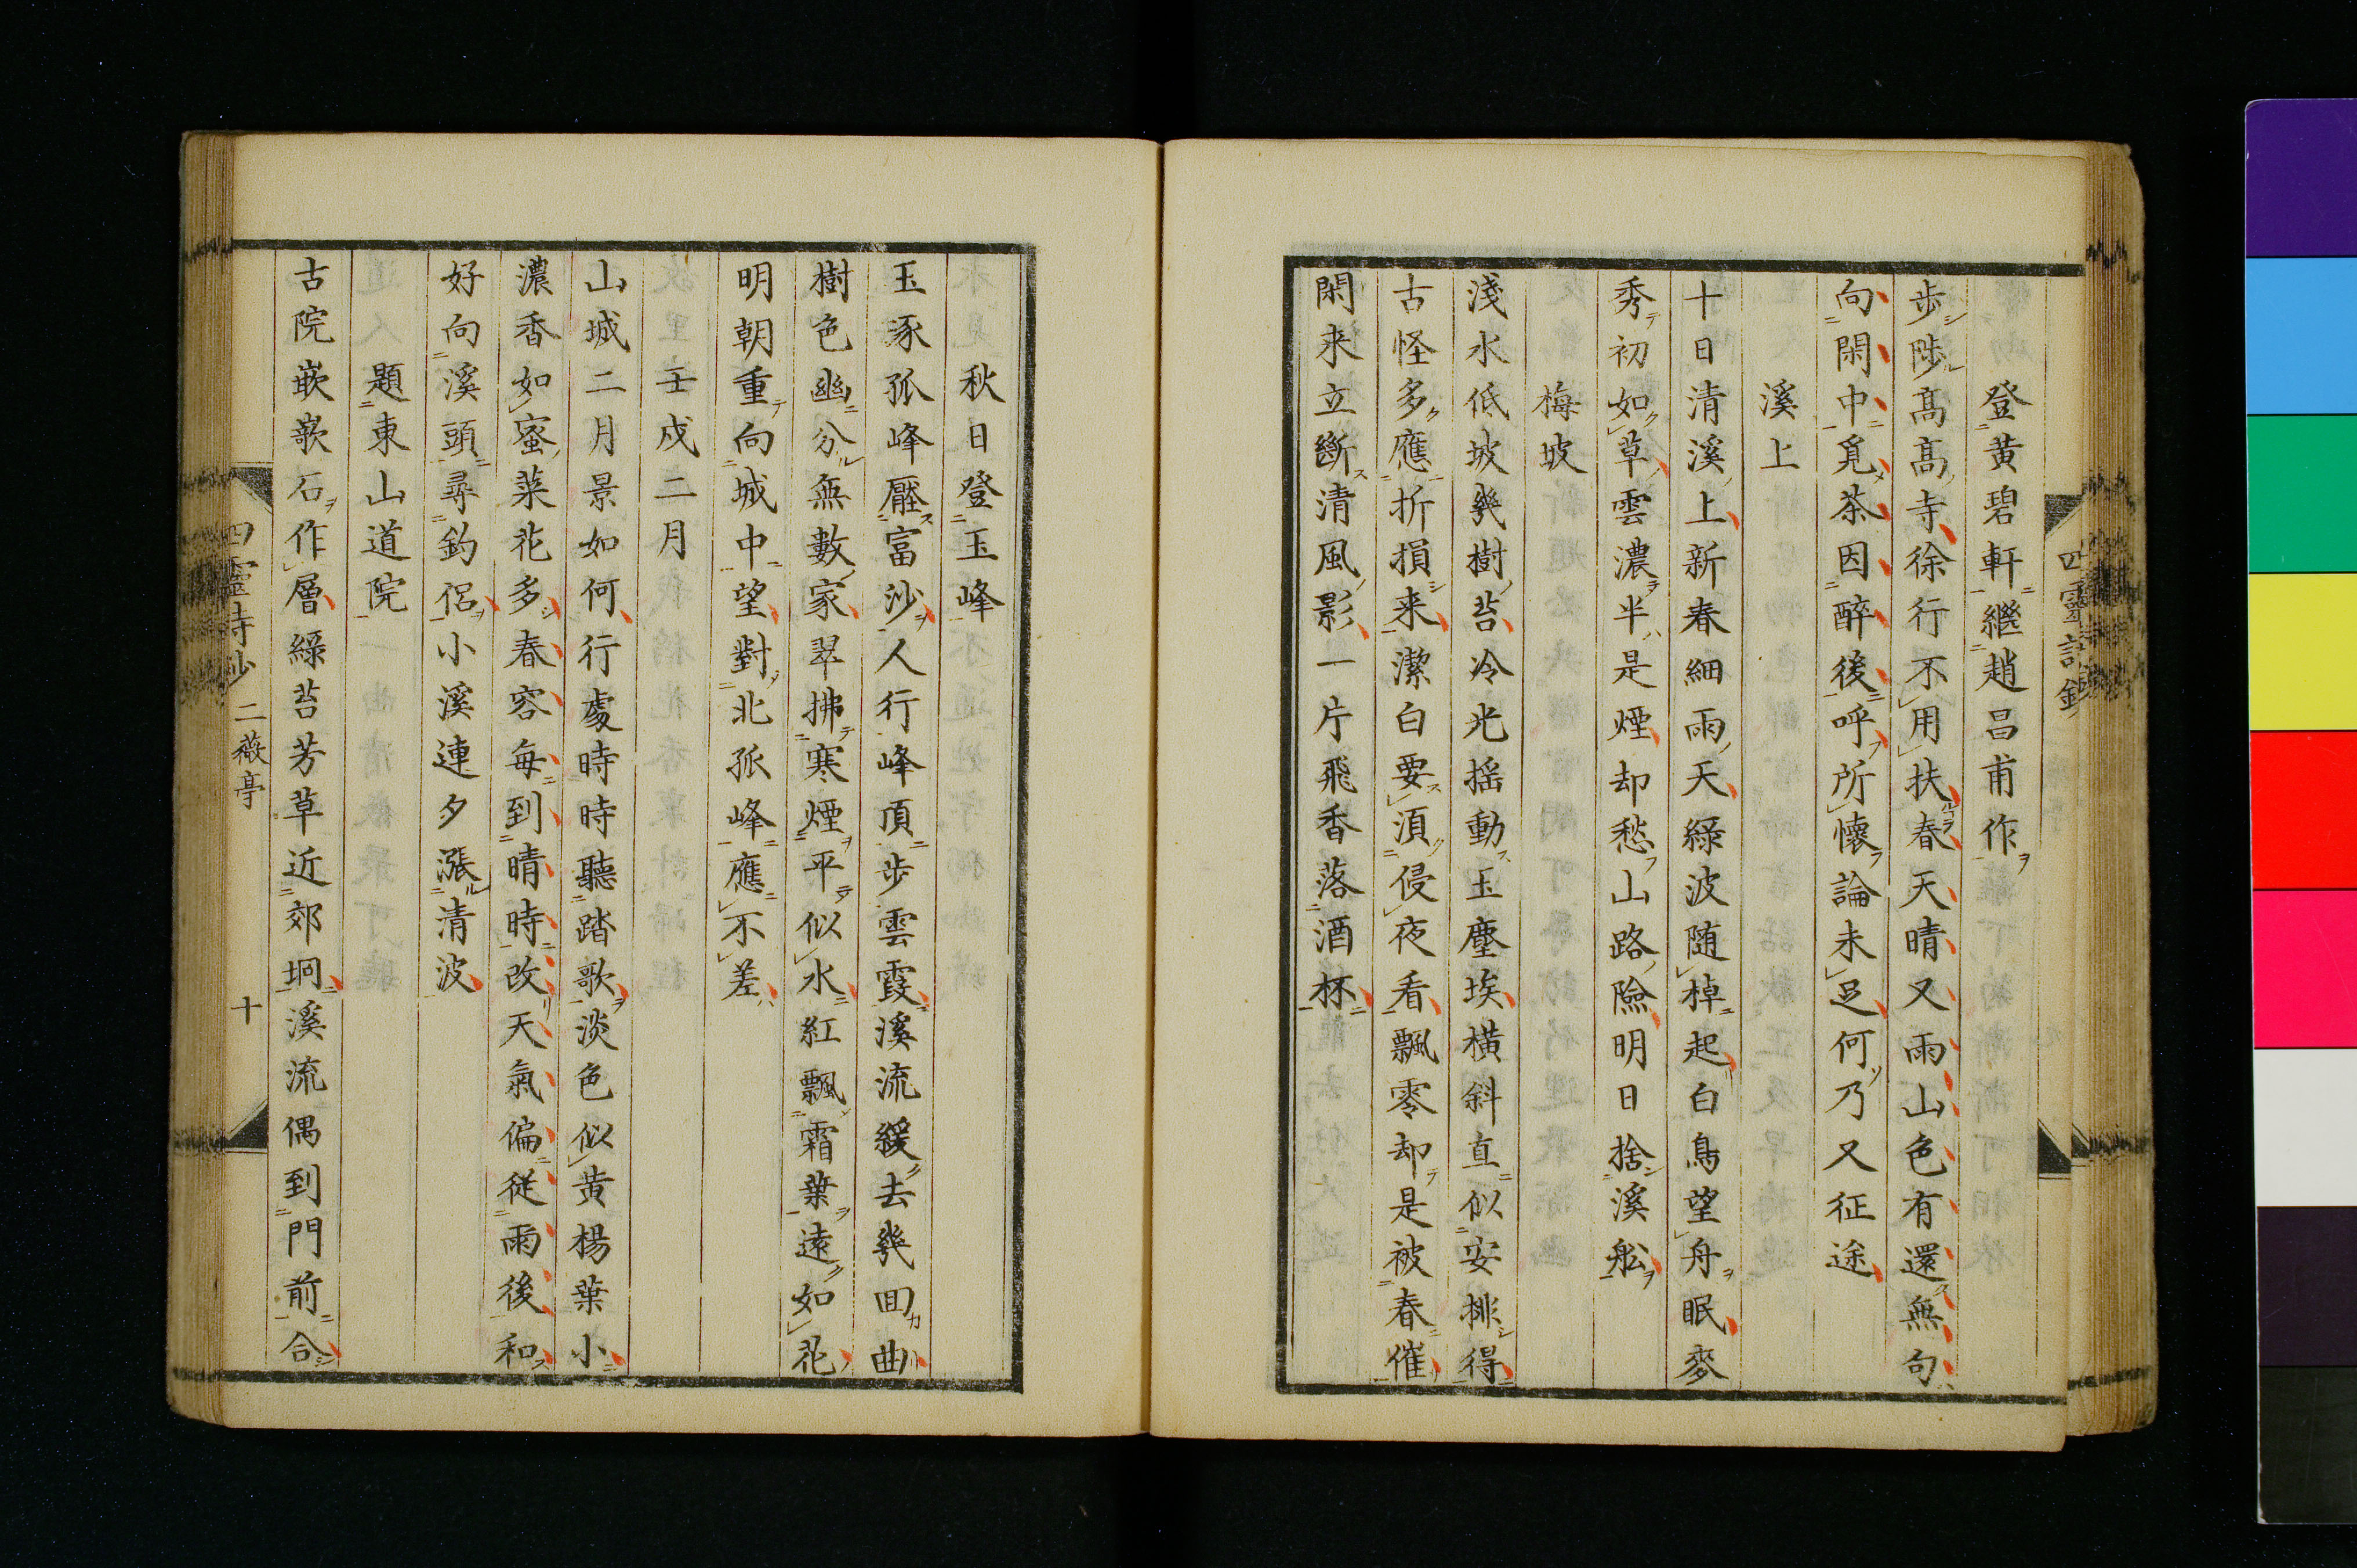 登黄碧軒繼趙昌甫作
步陟髙髙寺徐行不用扶春天晴又雨山色有還無句
向閑中覓茶因醉後呼所懷論未足何乃又征途
溪上
十日清溪上新春細雨天綠波随棹起白鳥望舟眠麥
秀初如草雲濃半是煙却愁山路險明日捨溪舩
梅坡
淺水低坡幾樹苔冷光揺動玉塵埃橫斜直似安排得
古怪多應折損来潔白要湏侵夜看飄零却是被春催
閑来立斷清風影一片飛香落酒杯
秋日登玉峰
玉涿孤峰壓富沙人行峰頂步雲霞溪流緩去幾囬曲
樹色幽分無數家翠拂寒煙平似水紅飄霜葉遠如花
明朝重向城中望對北孤峰應不差
壬戌二月
山城二月景如何行處時時聽踏歌淡色似黄楊葉小
濃香如蜜菜花多春容每到晴時改天氣偏従雨後和
好向溪頭尋釣侶小溪連夕漲清波
題東山道院
古院嵌嶔石作層綠苔芳草近郊坰溪流偶到門前合
四靈詩鈔 二薇亭 十